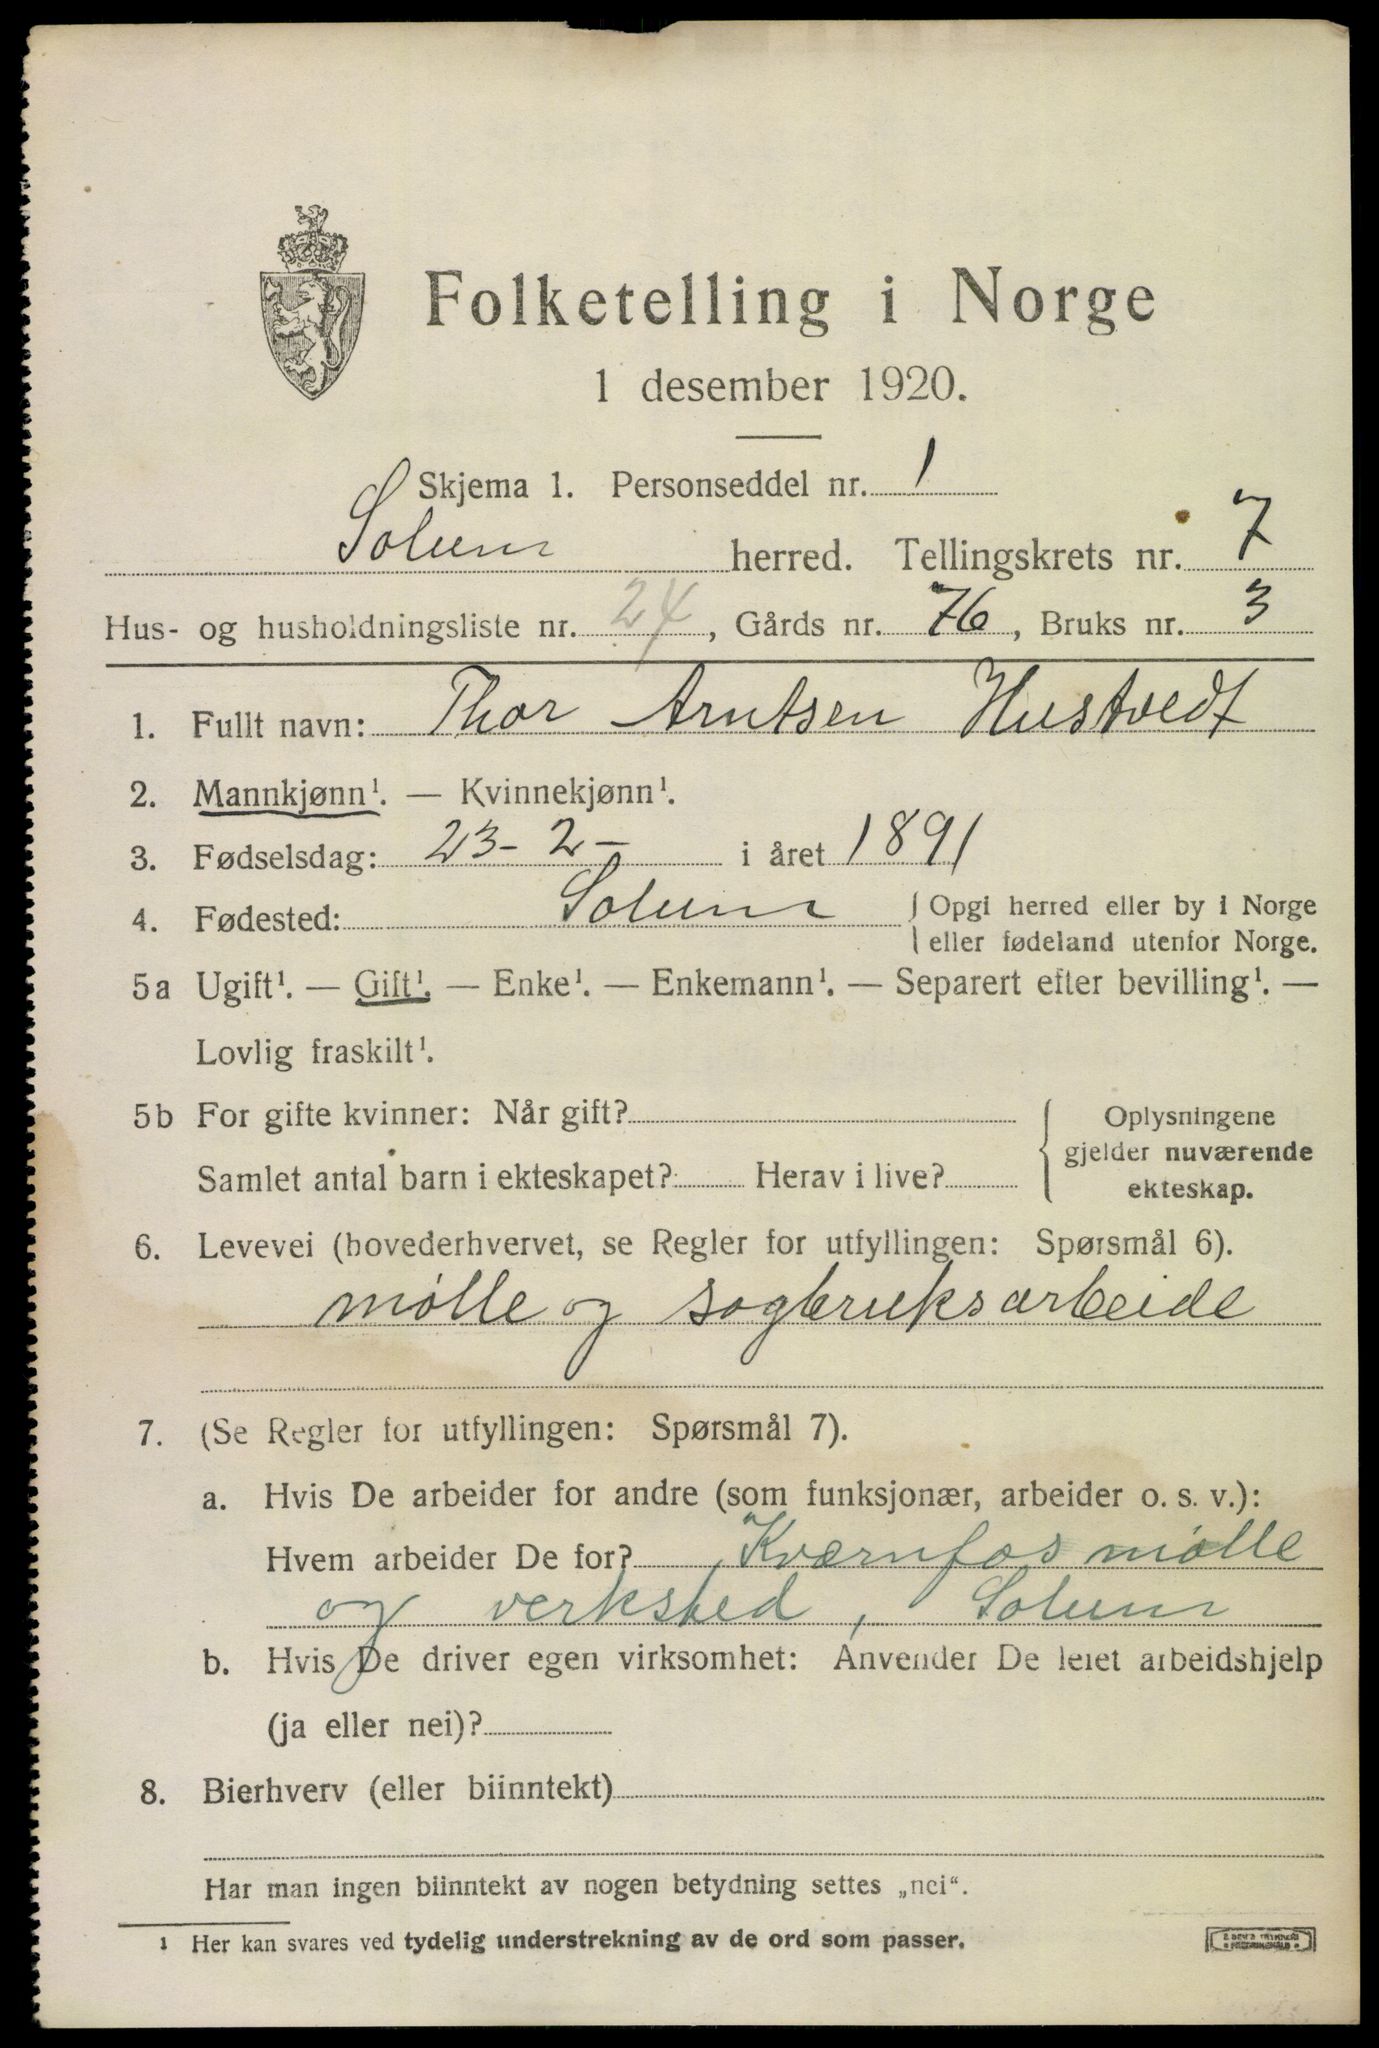 Folketelling i Norge
1 desember 1920.
Skjema 1. Personseddel nr. 1
Solum herred. Tellingskrets nr. 7
Hus- og husholdningsliste nr. 24, Gårds nr. 76, Bruks nr. 3
1. Fullt navn: Thor Arntsen Hustvedt
2. Mannkjønn¹. — Kvinnekjønn¹.
3. Fødselsdag: 23-2- i året 1891
4. Fødested: Solum { Opgi herred eller by i Norge
eller fødeland utenfor Norge.
5a Ugift¹. — Gift¹. — Enke¹. — Enkemann¹. — Separert efter bevilling¹. —
Lovlig fraskilt¹.
5b For gifte kvinner: Når gift? { Oplysningene
gjelder nuværende
Samlet antal barn i ekteskapet? Herav i live? ekteskap.
6. Levevei (hovederhvervet, se Regler for utfyllingen: Spørsmål 6).
mølle og sagbruksarbeide
7. (Se Regler for utfyllingen: Spørsmål 7).
a. Hvis De arbeider for andre (som funksjonær, arbeider o. s. v.):
Hvem arbeider De for? Kværnfos mølle
og verksted, Solum
b. Hvis De driver egen virksomhet: Anvender De leiet arbeidshjelp
(ja eller nei)?
8. Bierhverv (eller biinntekt)
Har man ingen biinntekt av nogen betydning settes „nei“.
¹ Her kan svares ved tydelig understrekning av de ord som passer.